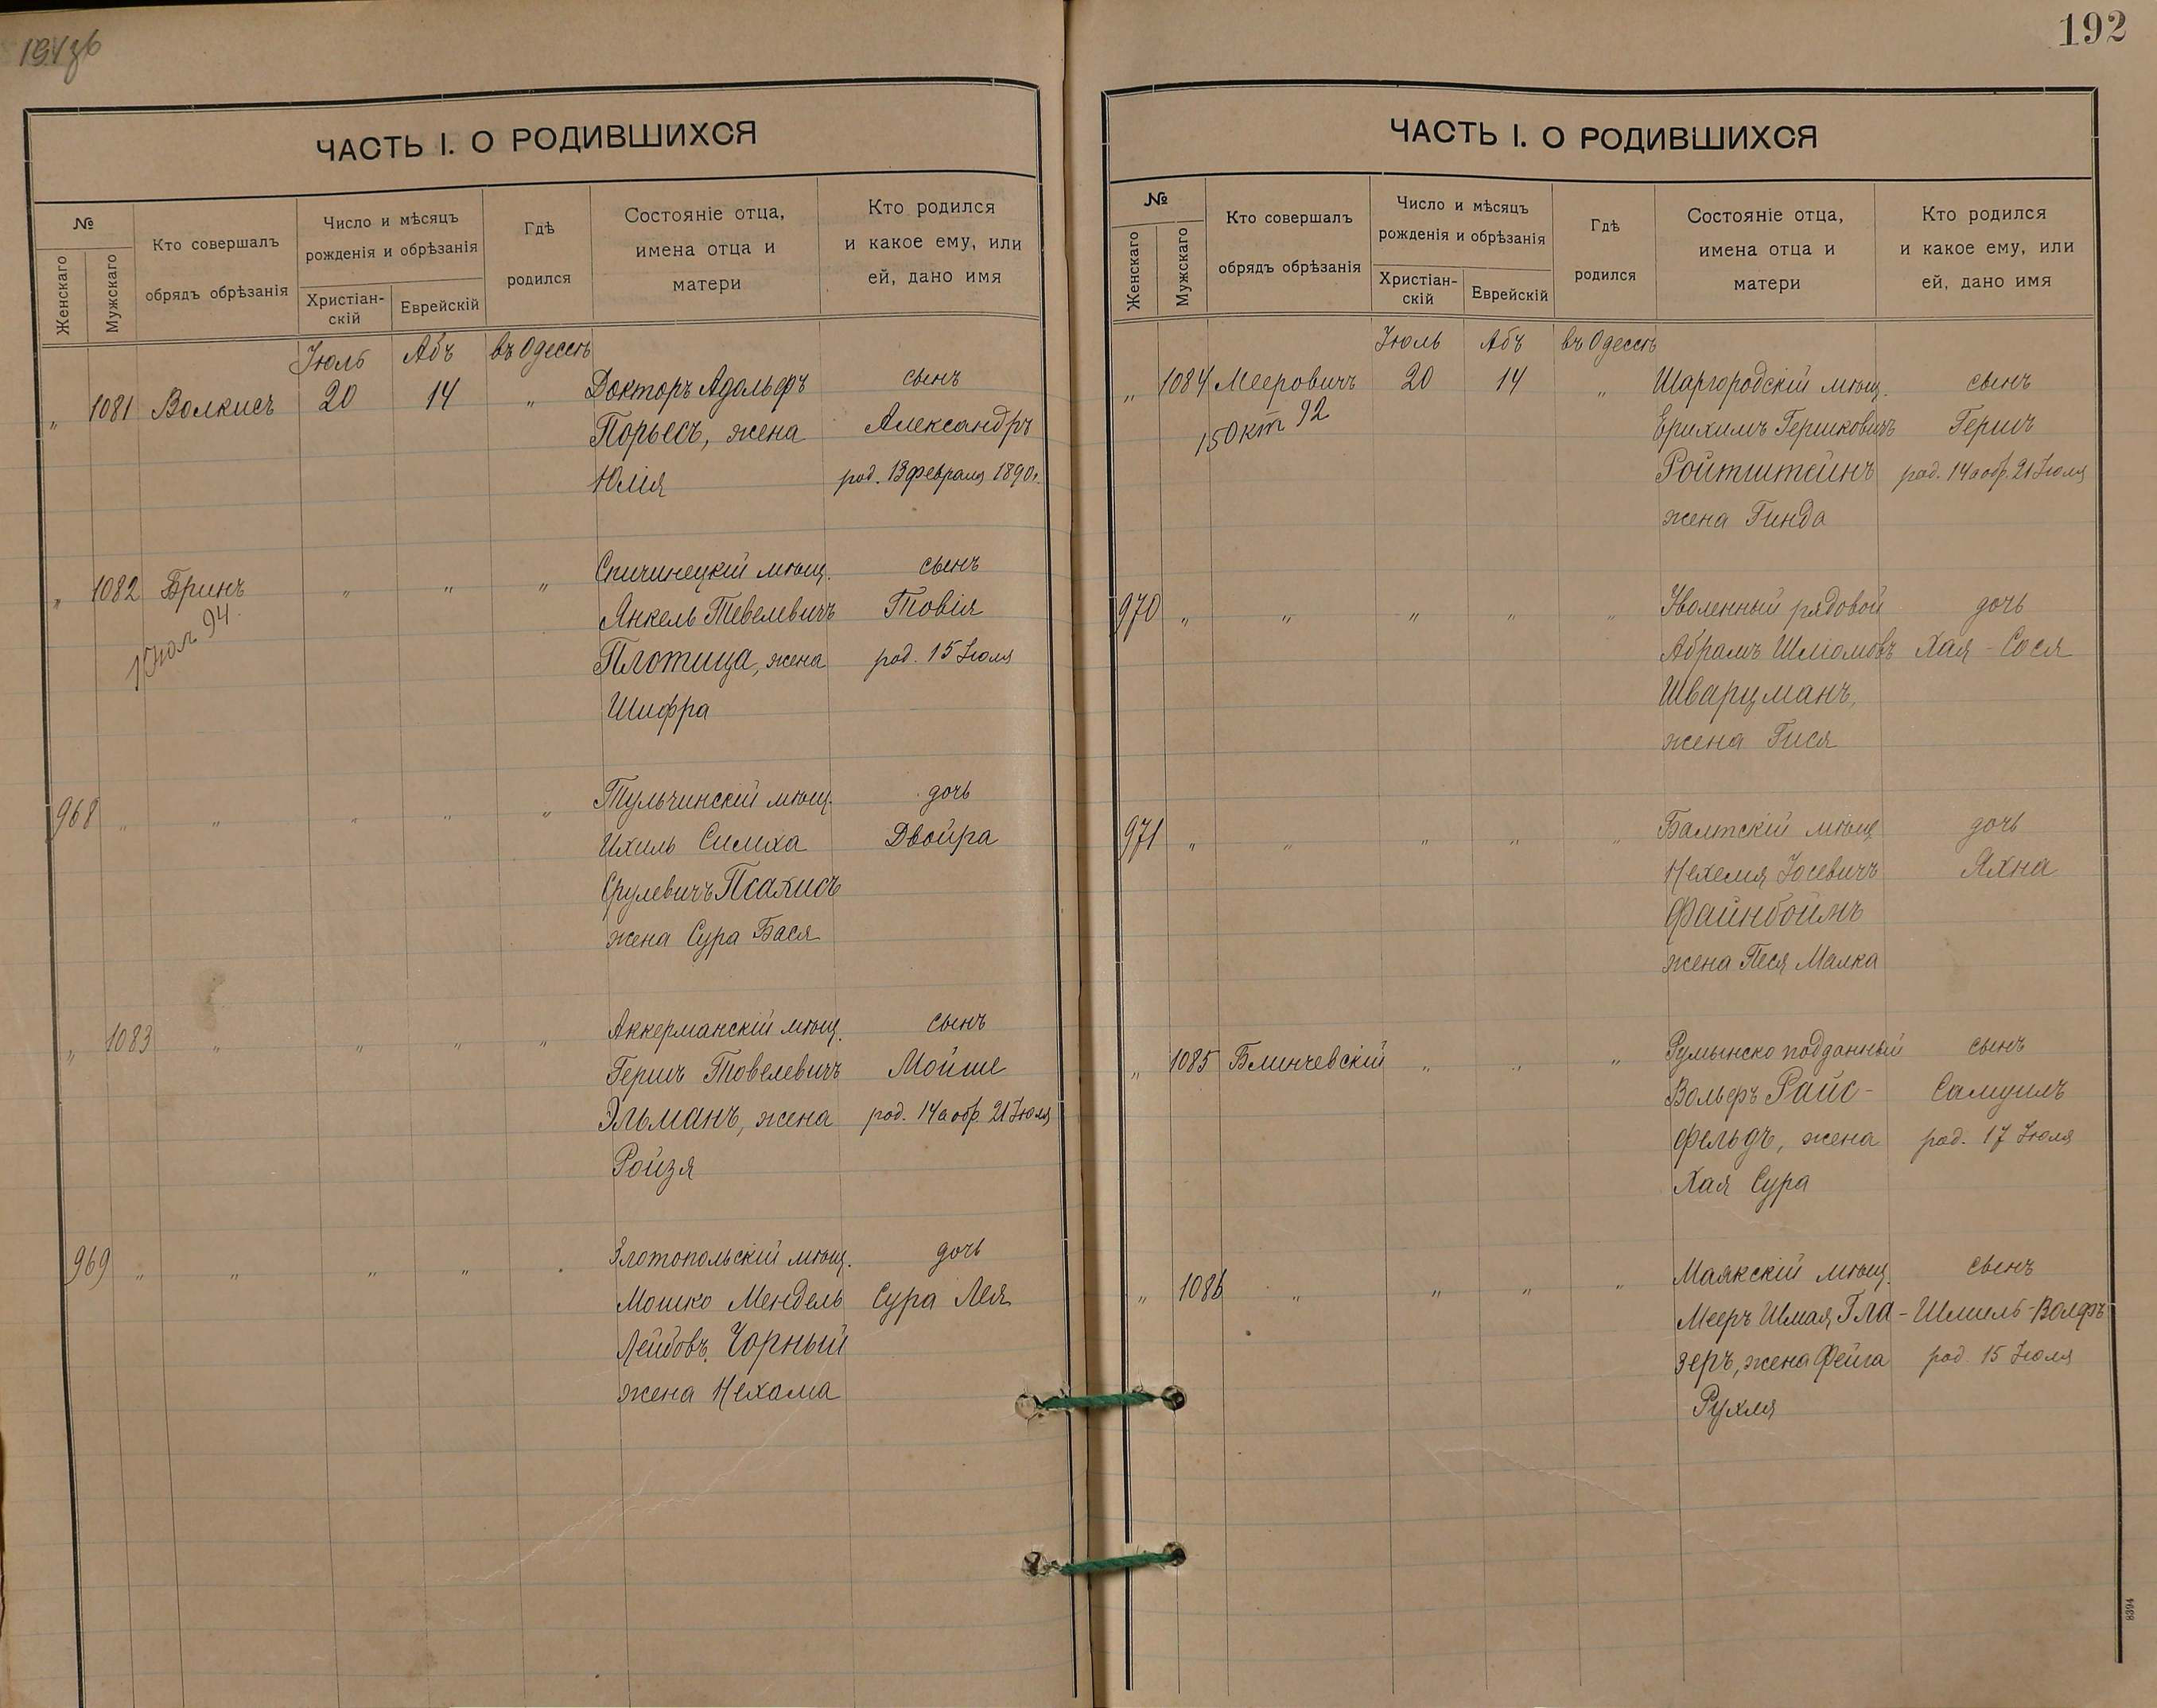 192
ЧАСТЬ I. О РОДИВШИХСЯ
№
Женскаго
Мужскаго
Кто совершалъ
обрядъ обрѣзанія
Число и мѣсяцъ
рожденія и обрѣзанія
Христіан-
скій
Еврейскій
Гдѣ
родился
Состояніе отца,
имена отца и
матери
Кто родился
и какое ему, или
ей, дано имя
Іюль Абъ въ Одессѣ
" 1081 Волкисъ 20 14 " Докторъ Адольфъ сынъ
Порьесъ, жена Александръ
Юлія род. 13 февраля 1890 г.
" 1082 Бринъ " " " Спичинецкій мѣщ. сынъ
94.
Янкель Тевелевичъ Товія
Плотица, жена род. 15 Іюля
Шифра
968 " " " " " Тульчинскій мѣщ. дочь
Ихиль Симха Двойра
Срулевичъ Псахисъ
жена Сура Бася
" 1083 " " " " Аккерманскій мѣщ. сынъ
Гершъ Товелевичъ Мойше
Эльманъ, жена род. 14 а обр. 21 Іюля
Ройзя
969 " " " " " Златопольскій мѣщ. дочь
Мошко Мендель Сура Лея
Лейбовъ Чорный
жена Нехама
ЧАСТЬ I. О РОДИВШИХСЯ
№
Женскаго
Мужскаго
Кто совершалъ
обрядъ обрѣзанія
Число и мѣсяцъ
рожденія и обрѣзанія
Христіан-
скій
Еврейскій
Гдѣ
родился
Состояніе отца,
имена отца и
матери
Кто родился
и какое ему, или
ей, дано имя
Іюль Абъ въ Одессѣ
" 1084 Мееровичъ 20 14 " Шаргородскій мѣщ. сынъ
15 Окт 92
Ерихимъ Гершковичъ Гершъ
Ройтштейнъ род. 14 а обр. 21 Іюля
жена Гинда
970 " " " " " Уволенный рядовой дочь
Абрамъ Шліомовъ Хая-Сося
Шварцманъ,
жена Гися
971 " " " " " Балтскій мѣщ дочь
Нехемя Іосевичъ Яхна
Файнбоймъ
жена Песя Малка
" 1085 Блинчевскій " " " Румынско подданный сынъ
Вольфъ Райс- Самуилъ
фельдъ, жена род. 17 Іюля
Хая Сура
" 1086 " " " " Маякскій мѣщ. сынъ
Мееръ Шмая Гла- Шмиль-Волфъ
зеръ, жена Фейга род 15 Іюля
Рухля
8394